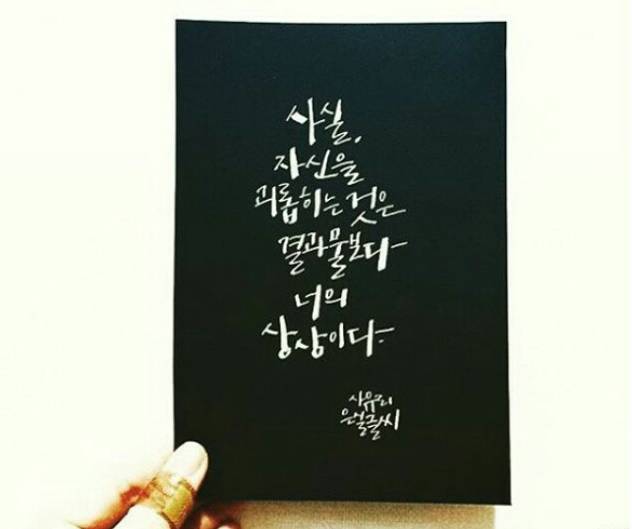 사실,
자신을
괴롭히는 것은
결과물보다
너의
상상이다.
사유리
은설글씨